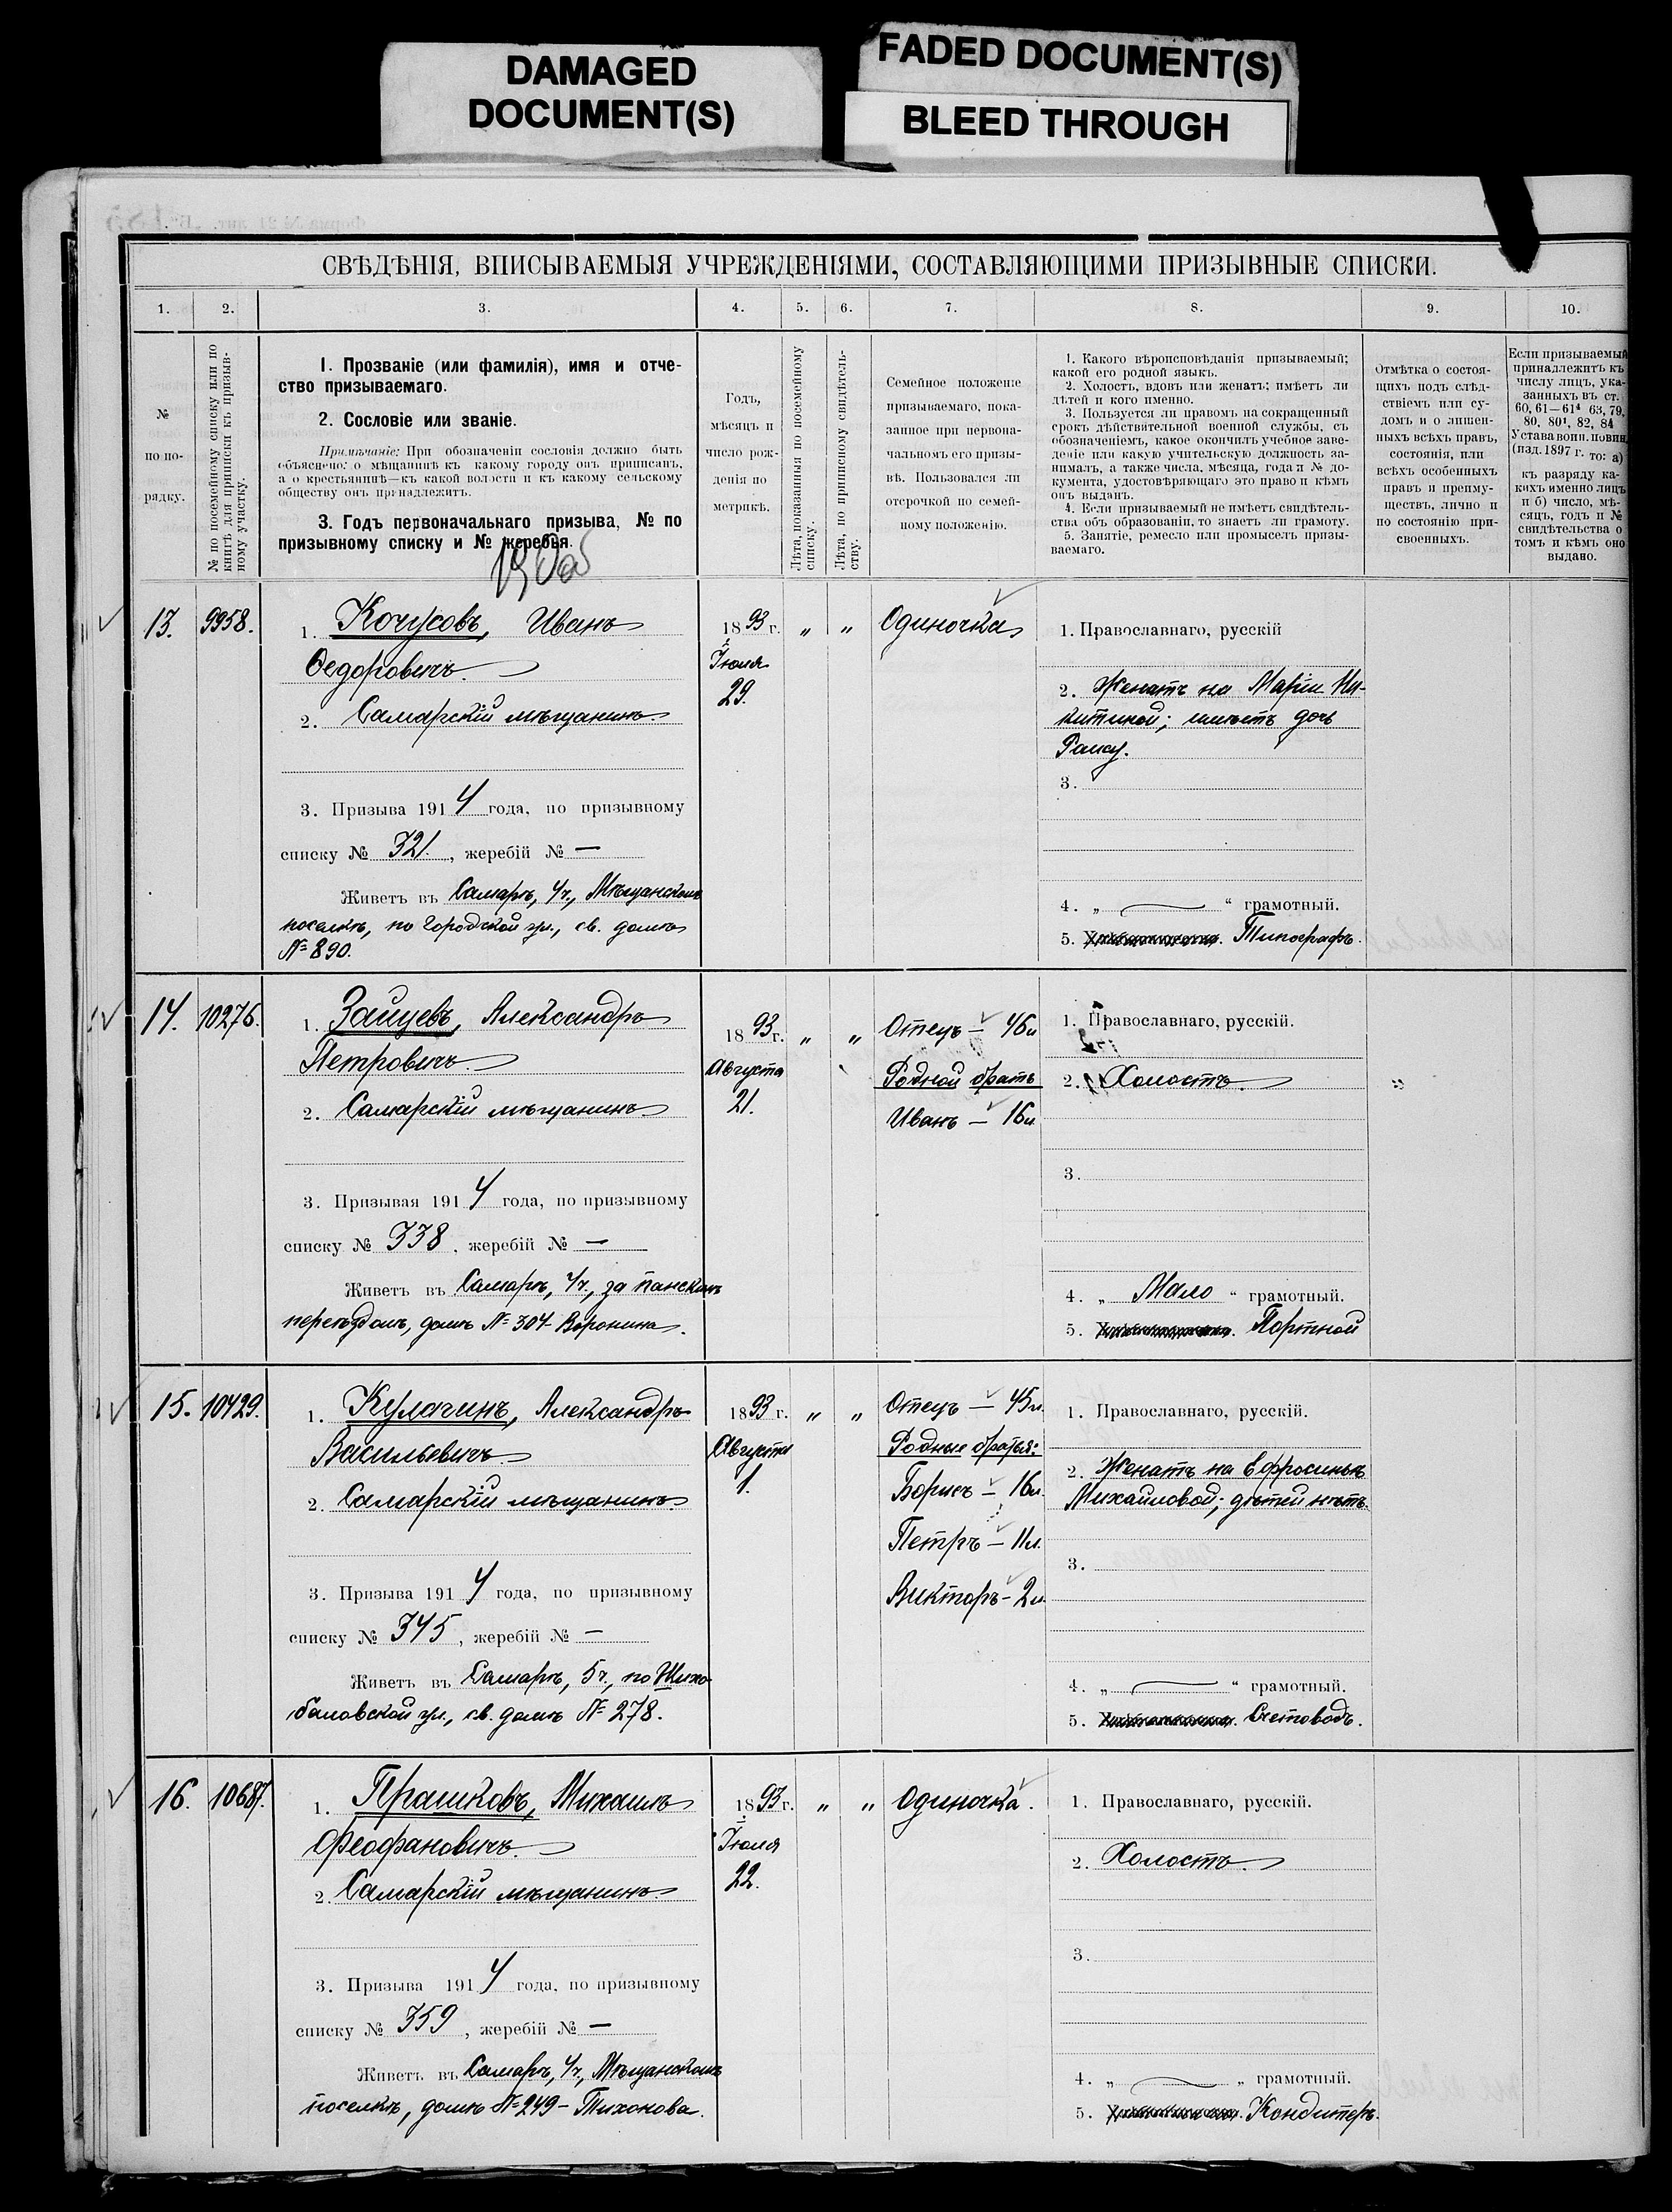 DAMAGED
DOCUMENT(S)
FADED DOCUMENT(S)
BLEED THROUGH
СВѢДѢНІЯ, ВПИСЫВАЕМЫЯ УЧРЕЖДЕНІЯМИ, СОСТАВЛЯЮЩИМИ ПРИЗЫВНЫЕ СПИСКИ.
1. 2. 3. 4. 5. 6. 7. 8. 9. 10.
№
по по-
рядку.
№ по посемейному списку или по
книгѣ для приписки къ призыв-
ному участку.
1. Прозваніе (или фамилія), имя и отче-
ство призываемаго.
2. Сословіе или званіе.
Примѣчаніе: При обозначеніи сословія должно быть
объяснено: о мѣщанинѣ къ какому городу онъ приписанъ,
а о крестьянинѣ—къ какой волости и къ какому сельскому
обществу онъ принадлежитъ.
3. Годъ первоначальнаго призыва, № по
призывному списку и № жеребья.
Годъ,
мѣсяцъ и
число рож-
денія по
метрикѣ.
Лѣта, показанныя по посемейному
списку.
Лѣта, по приписному свидѣтель-
ству.
Семейное положеніе
призываемаго, пока-
занное при первона-
чальномъ его призы-
вѣ. Пользовался ли
отсрочкой по семей-
ному положенію.
1. Какого вѣроисповѣданія призываемый;
какой его родной языкъ.
2. Холостъ, вдовъ или женатъ; имѣетъ ли
дѣтей и кого именно.
3. Пользуется ли правомъ на сокращенный
срокъ дѣйствительной военной службы, съ
обозначеніемъ, какое окончилъ учебное заве-
деніе или какую учительскую должность за-
нималъ, а также числа, мѣсяца, года и № до-
кумента, удостовѣряющаго это право и кѣмъ
онъ выданъ.
4. Если призываемый не имѣетъ свидѣтель-
ства объ образованіи, то знаетъ ли грамоту.
5. Занятіе, ремесло или промыселъ призы-
ваемаго.
Отмѣтка о состоя-
щихъ подъ слѣд-
ствіемъ или су-
домъ и о лишен-
ныхъ всѣхъ правъ,
состоянія, или
всѣхъ особенныхъ
правъ и преиму-
ществъ, лично и
по состоянію при-
своенныхъ.
Если призываемый
принадлежитъ къ
числу лицъ, ука-
занныхъ въ ст.
60, 61—61⁴ 63, 79,
80, 80¹, 82, 84
Устава воин. повин.
(изд. 1897 г. то: а)
къ разряду ка-
кихъ именно лицъ
и б) число, мѣ-
сяцъ, годъ и №
свидѣтельства о
томъ и кѣмъ оно
выдано.
13. 9958.
1. Кочусовъ, Иванъ
Ѳедоровичъ.
2. Самарскій мѣщанинъ
3. Призыва 1914 года, по призывному
списку № 321., жеребій № —
Живетъ въ Самарѣ, 4ч., Мѣщанскомъ
поселкѣ, по Городской ул., св. домъ
№ 890.
1893 г.
Іюля
29.
" "
Одиночка
1. Православнаго, русскій
2. Женатъ на Маріи Ни-
китиной; имѣетъ дочь
Раису.
3.
4. „ — “ грамотный.
5. Типографъ.
14. 10276.
1. Зайцевъ, Александръ
Петровичъ
2. Самарскій мѣщанинъ
3. Призывая 1914 года, по призывному
списку № 338, жеребій № —
Живетъ въ Самарѣ, 4ч., за панскимъ
переѣздомъ, домъ № 304 Воронина.
1893 г.
Августа
21.
" "
Отецъ — 46 л
Родной братъ
Иванъ — 16 л
1. Православнаго, русскій.
2. Холостъ
3.
4. „ Мало “ грамотный.
5. Портной
15. 10429.
1. Кулагинъ, Александръ
Васильевичъ
2. Самарскій мѣщанинъ.
3. Призыва 1914 года, по призывному
списку № 345, жеребій № —
Живетъ въ Самарѣ, 5ч., по Шихо-
баловской ул., св. домъ № 278.
1893 г.
Августа
1.
" "
Отецъ — 45 л.
Родные братья:
Борисъ — 16 л.
Петръ — 11 л.
Викторъ — 2 л.
1. Православнаго, русскій.
2. Женатъ на Ефросиньѣ
Михайловой; дѣтей нѣтъ.
3.
4. „ — “ грамотный.
5. Счетоводъ.
16. 10687.
1. Герашковъ, Михаилъ
Феофановичъ
2. Самарскій мѣщанинъ
3. Призыва 1914 года, по призывному
списку № 359, жеребій № —
Живетъ въ Самарѣ, 4ч., Мѣщанскомъ
поселкѣ, домъ № 249 — Тихонова.
1893 г.
Іюля
22.
" "
Одиночка.
1. Православнаго, русскій.
2. Холостъ.
3.
4. „ — „ грамотный.
5. Кондитеръ.